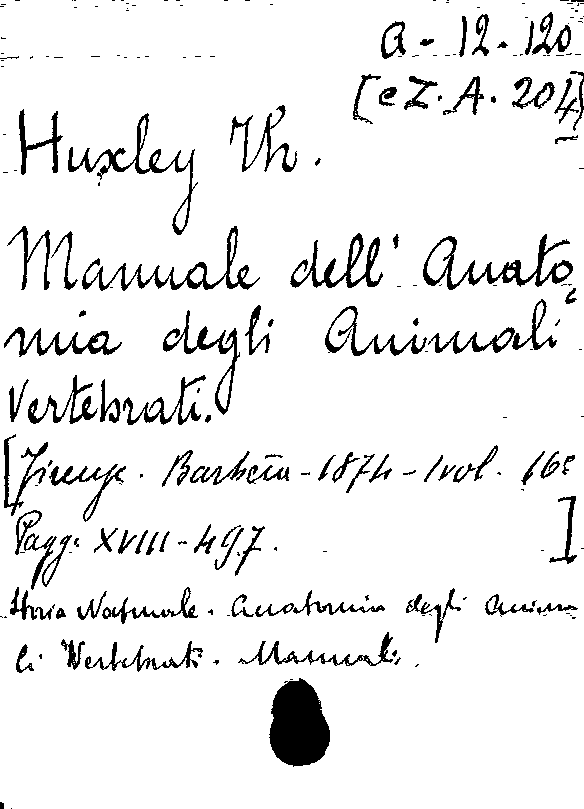 a - 12 - 120
[e Z. A. 204]
Huxley Th.
Manuale dell' Anato
mia degli Animali
Vertebrati.
[Firenze. Barbèra - 1874 - 1 vol. 16º
Pagg. XVIII - 497. ]
Storia Naturale. Anatomia degli Anima
li Vertebrati. Manuali.